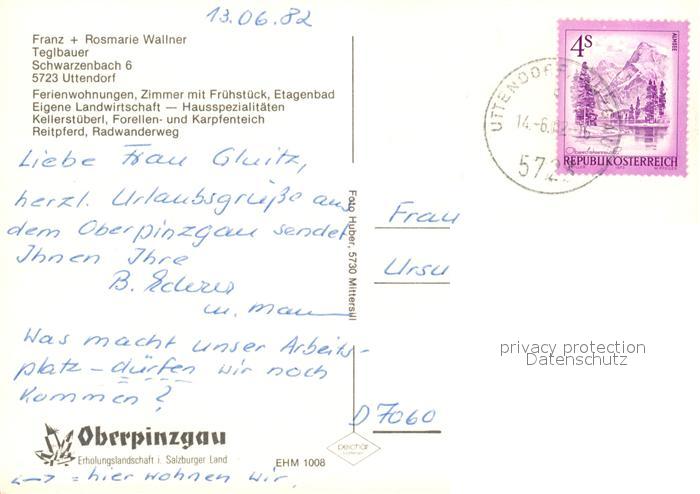 13.06.82
Franz + Rosmarie Wallner
Teglbauer
Schwarzenbach 6
5723 Uttendorf
Ferienwohnungen, Zimmer mit Frühstück, Etagenbad
Eigene Landwirtschaft — Hausspezialitäten
Kellerstüberl, Forellen- und Karpfenteich
Reitpferd, Radwanderweg
Liebe Frau
herzl. Urlaubsgrüße aus
dem Oberpinzgau sendet
Ihnen Ihre
B.
u. Mann
Was macht unser Arbeits-
platz – dürfen wir noch
kommen?
Oberpinzgau
Erholungslandschaft i. Salzburger Land
EHM 1008
←→ = hier wohnen wir.
Foto Huber, 5730 Mittersill
4S
ALMSEE
REPUBLIK ÖSTERREICH
UTTENDORF
14.-6.82
572
Frau
Ursu
privacy protection
Datenschutz
D 7060